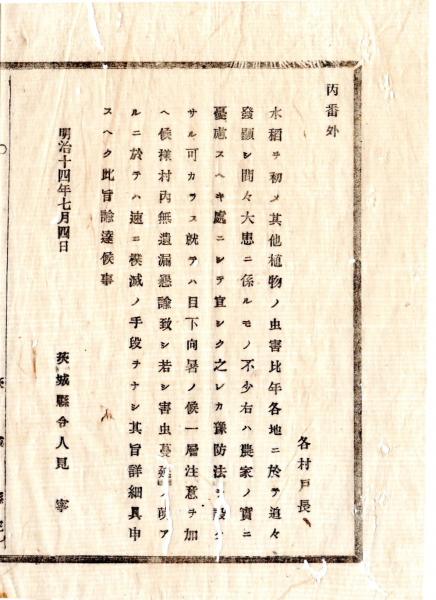 丙番外
各村戸長
水稻ヲ初メ其他植物ノ虫害比年各地ニ於テ追々
發顯シ間々大患ニ係ルモノ不少右ハ農家ノ實ニ
憂慮スヘキ處ニシテ宜シク之レカ豫防法ヲ設ケ
サル可カラス就テハ目下向暑ノ候一層注意ヲ加
ヘ候樣村内無遺漏懇諭致シ若シ害虫蔓延ノ
ルニ於テハ速ニ撲滅ノ手段ヲナシ其旨詳細具申
スヘク此旨諭達候事
明治十四年七月四日
茨城縣令人見寧